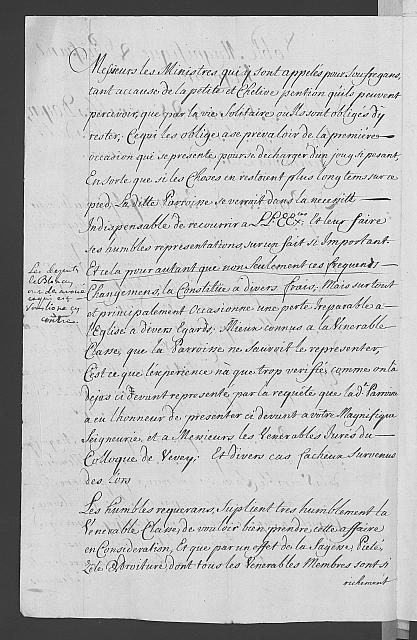 Messieurs les Ministres qui y sont appelés pour soufregans,
tant accause de la petite et Chetive pention qu'ils peuvent
percevoir, que par la vie Solitaire ou Ils sont obligés d'y
rester; Ce qui les oblige a se prevaloir de la premiere
occasion qui se presente, pour se decharger d'un joug si pesant,
En sorte que si les Choses en restoient plus long tems sur ce
pied, La ditte Parroisse se verrait dans la necessité
Indispensable de recourrir a LL: EEces. Et leur faire
ses aumbles representations, sur un fait si Important.
Et cela pour autant que non seulement ces frequends
Changemens, la Constitue a divers frais; Mais sur tout
et principalement Occasionne une perte Ireparable a
l'Eglise a divers Egards: Mieux connus a la Venerable
Classe, que la Parroisse ne sauroit le representer,
C'est ce que l'experience na que trop verifié, comme on l'a
dejas ci devant representé, par la requête que lad.e Parroisse
a eu l'honneur de presenter ci devant a votre Magnifique
Seigneurie, et a Messieurs les Venerables Jurés du
Colloque de Vevey; Et divers cas facheux survenus
des lors
Les humbles requerans, suplient tres humblement la
Venerable Classe, de vouloir bien prendre, cette affaire
en Consideration, Et que par un effet de la Sagesse, Pieté,
Zele & Droiture dont tous les Venerables Membres sont si
richement
Les
de Blonay
ont
ce qui est